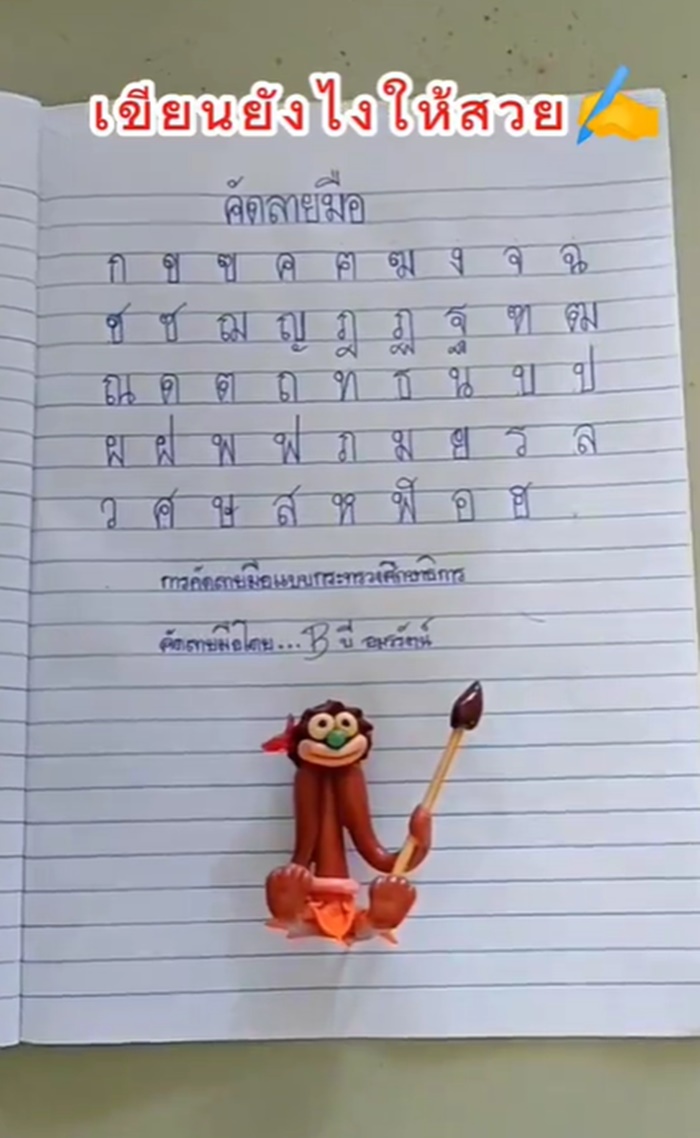 เขียนยังไงให้สวย✍️
คัดลายมือ
ก ข ฃ ค ฅ ฆ ง จ ฉ
ช ซ ฌ ญ ฎ ฏ ฐ ฑ ฒ
ณ ด ต ถ ท ธ น บ ป
ผ ฝ พ ฟ ภ ม ย ร ล
ว ศ ษ ส ห ฬ อ ฮ
การคัดลายมือแบบกระทรวงศึกษาธิการ
คัดลายมือโดย... B บี อมรรัตน์